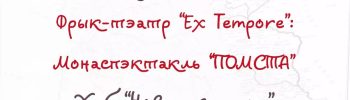 Фрык-тэатр “Ex Tempore”:
Монаспэктакль “ПОМСТА”